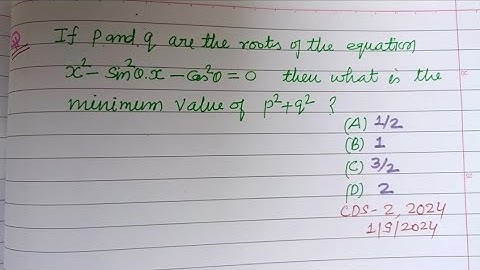 Q If p and q are the roots of the equation
x² - sin²θ.x - cos²θ = 0 then what is the
minimum value of p²+q² ?
(A) 1/2
(B) 1
(C) 3/2
(D) 2
CDS-2, 2024
1/9/2024